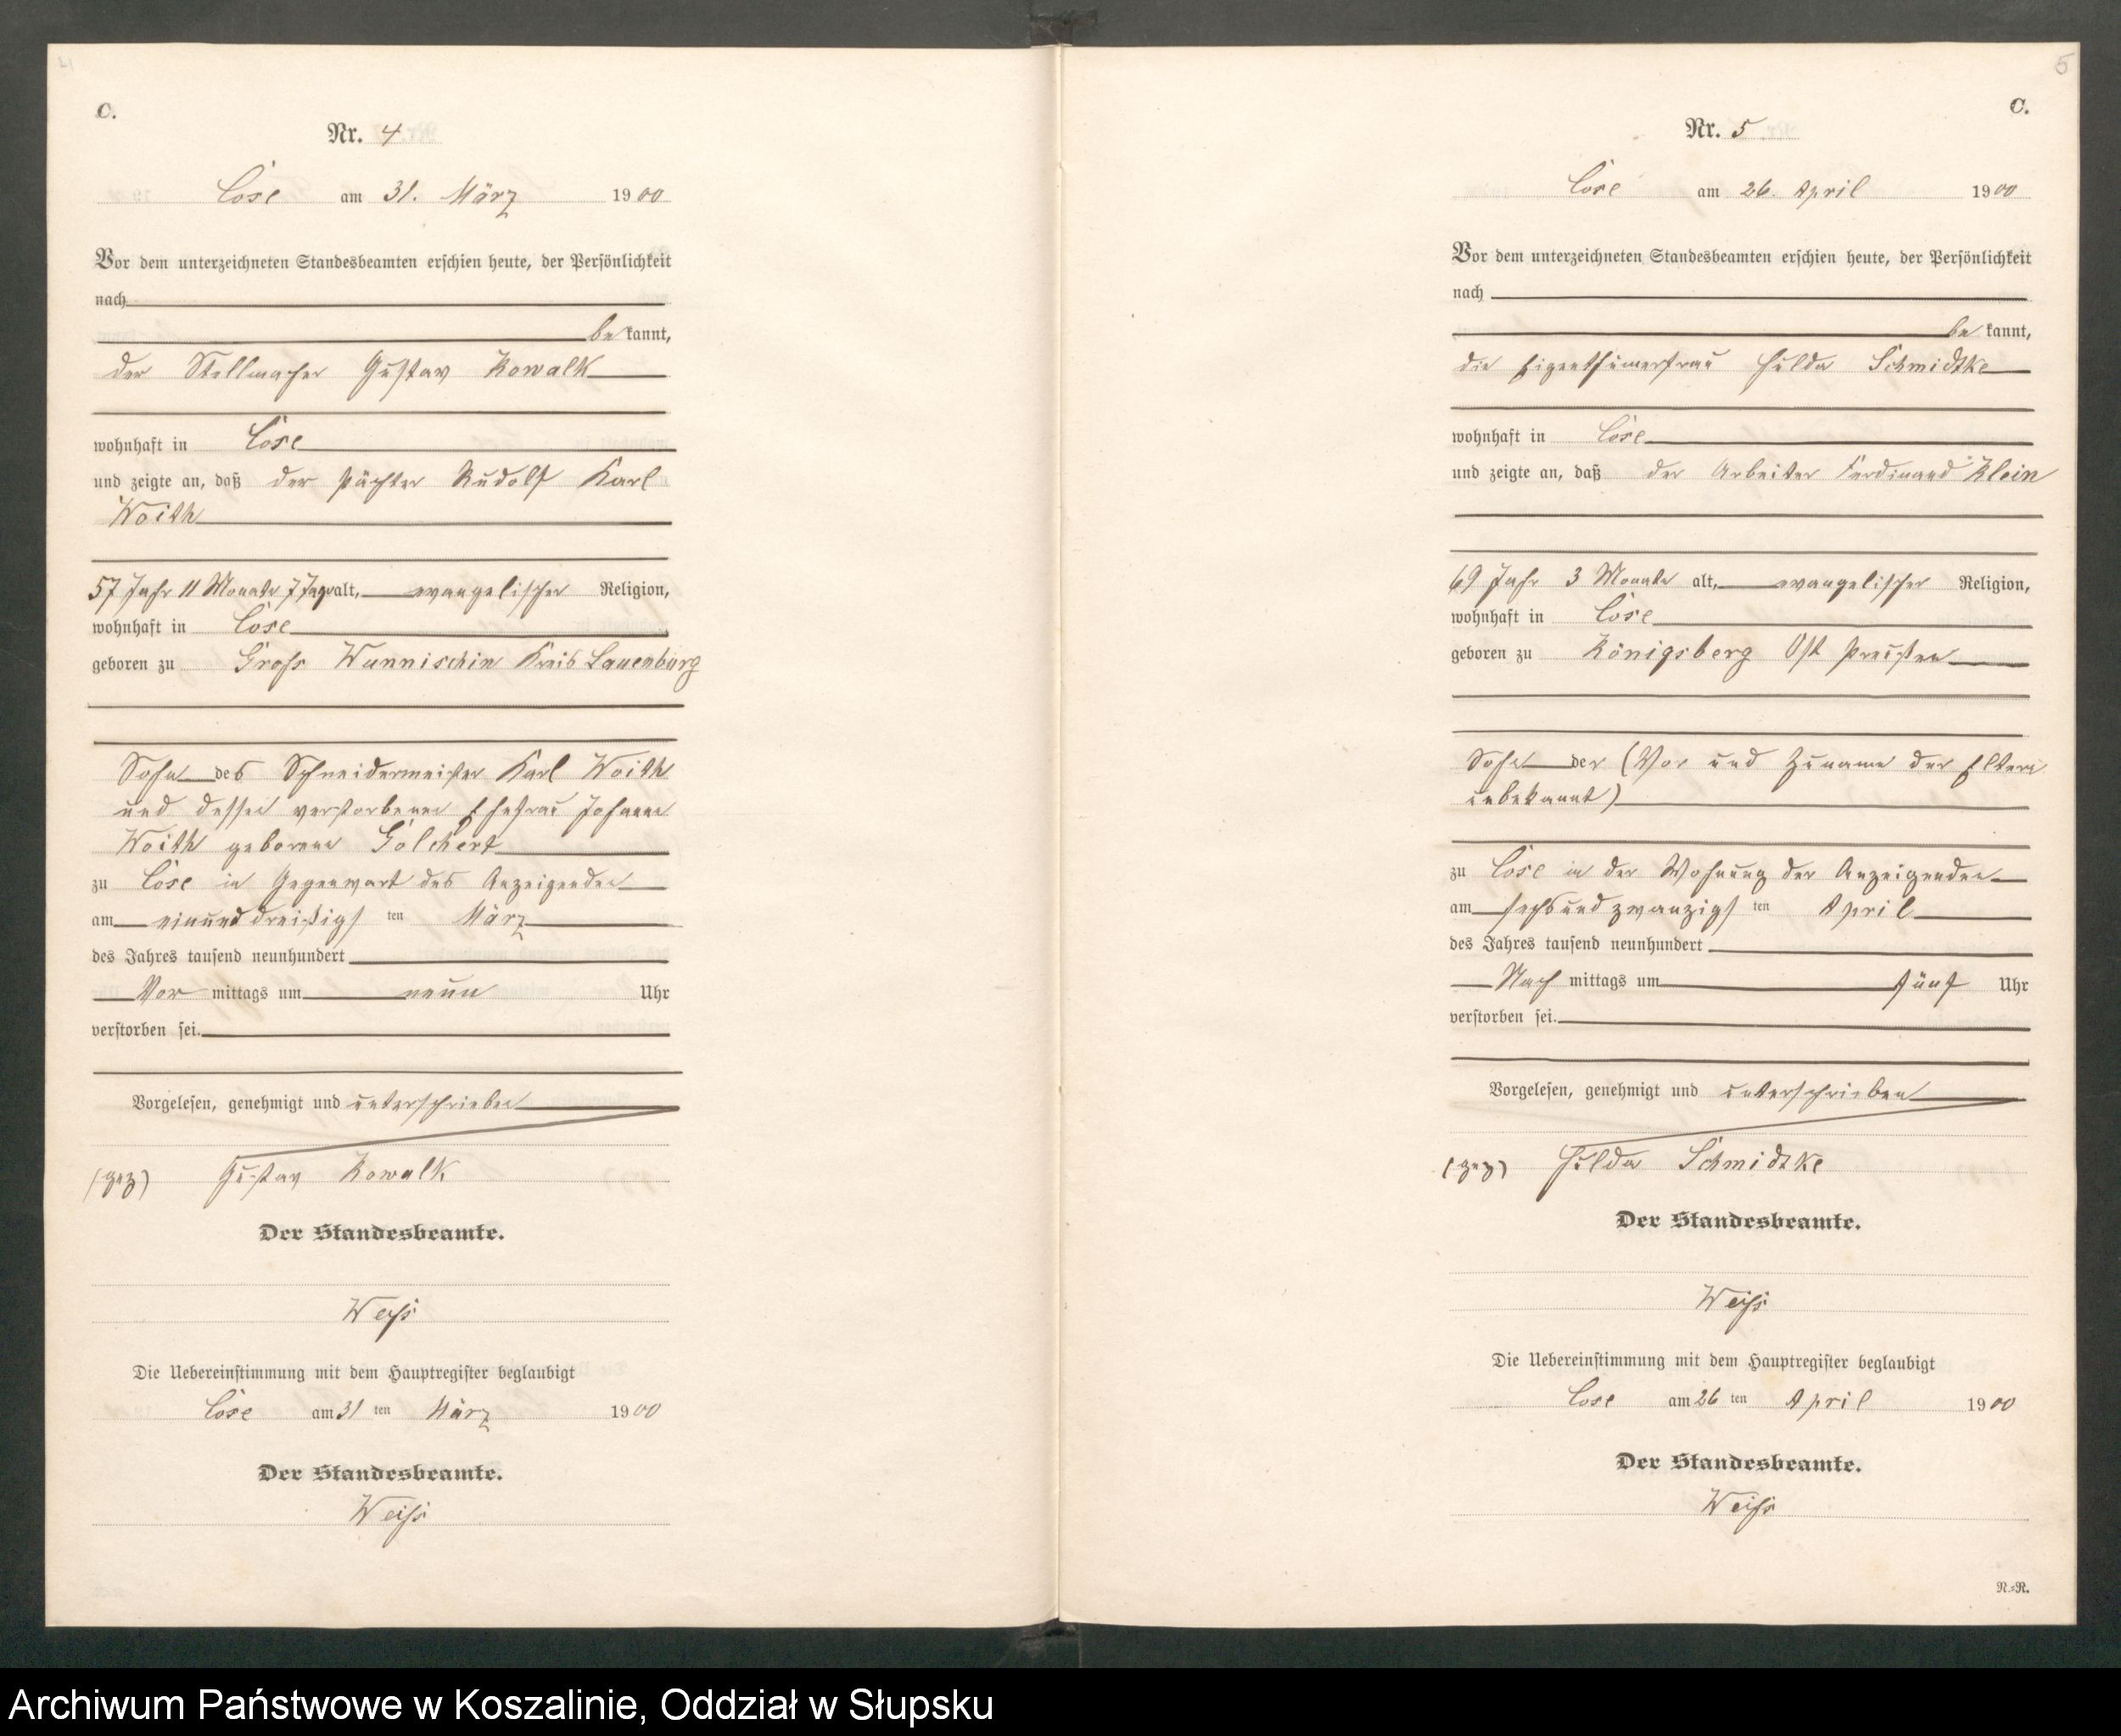 4
C.
Nr. 4
Cose am 31. März 1900
Vor dem unterzeichneten Standesbeamten erschien heute, der Persönlichkeit
nach
be kannt,
der Stellmacher Gustav Kowalk
wohnhaft in Cose
und zeigte an, daß der Pächter Rudolf Karl
Woith
57 Jahr 11 Monate 7 Tage alt, evangelischer Religion,
wohnhaft in Cose
geboren zu Gross Wunnischin Kreis Lauenburg
Sohn des Schneidermeister Karl Woith
und dessen verstorbenen Ehefrau Johanne
Woith geborene Gölchert
zu Cose in Gegenwart des Anzeigenden
am einunddreißigs ten März
des Jahres tausend neunhundert
Vor mittags um neun Uhr
verstorben sei.
Vorgelesen, genehmigt und unterschrieben
(gez) Gustav Kowalk
Der Standesbeamte.
Weiss
Die Uebereinstimmung mit dem Hauptregister beglaubigt
Cose am 31 ten März 1900
Der Standesbeamte.
Weiss
5
C.
Nr. 5
Cose am 26. April 1900
Vor dem unterzeichneten Standesbeamten erschien heute, der Persönlichkeit
nach
be kannt,
die Eigenthümerfrau Hulda Schmidtke
wohnhaft in Cose
und zeigte an, daß der Arbeiter Ferdinand Klein
69 Jahr 3 Monate alt, evangelischer Religion,
wohnhaft in Cose
geboren zu Königsberg Ost Preußen
Sohn der (Vor und Zuname der Eltern
unbekannt)
zu Cose in der Wohnung der Anzeigenden
am sechsundzwanzigs ten April
des Jahres tausend neunhundert
Nach mittags um fünf Uhr
verstorben sei.
Vorgelesen, genehmigt und unterschrieben
(gez) Hulda Schmidtke
Der Standesbeamte.
Weiss
Die Uebereinstimmung mit dem Hauptregister beglaubigt
Cose am 26 ten April 1900
Der Standesbeamte.
Weiss
N.=R.
Archiwum Państwowe w Koszalinie, Oddział w Słupsku